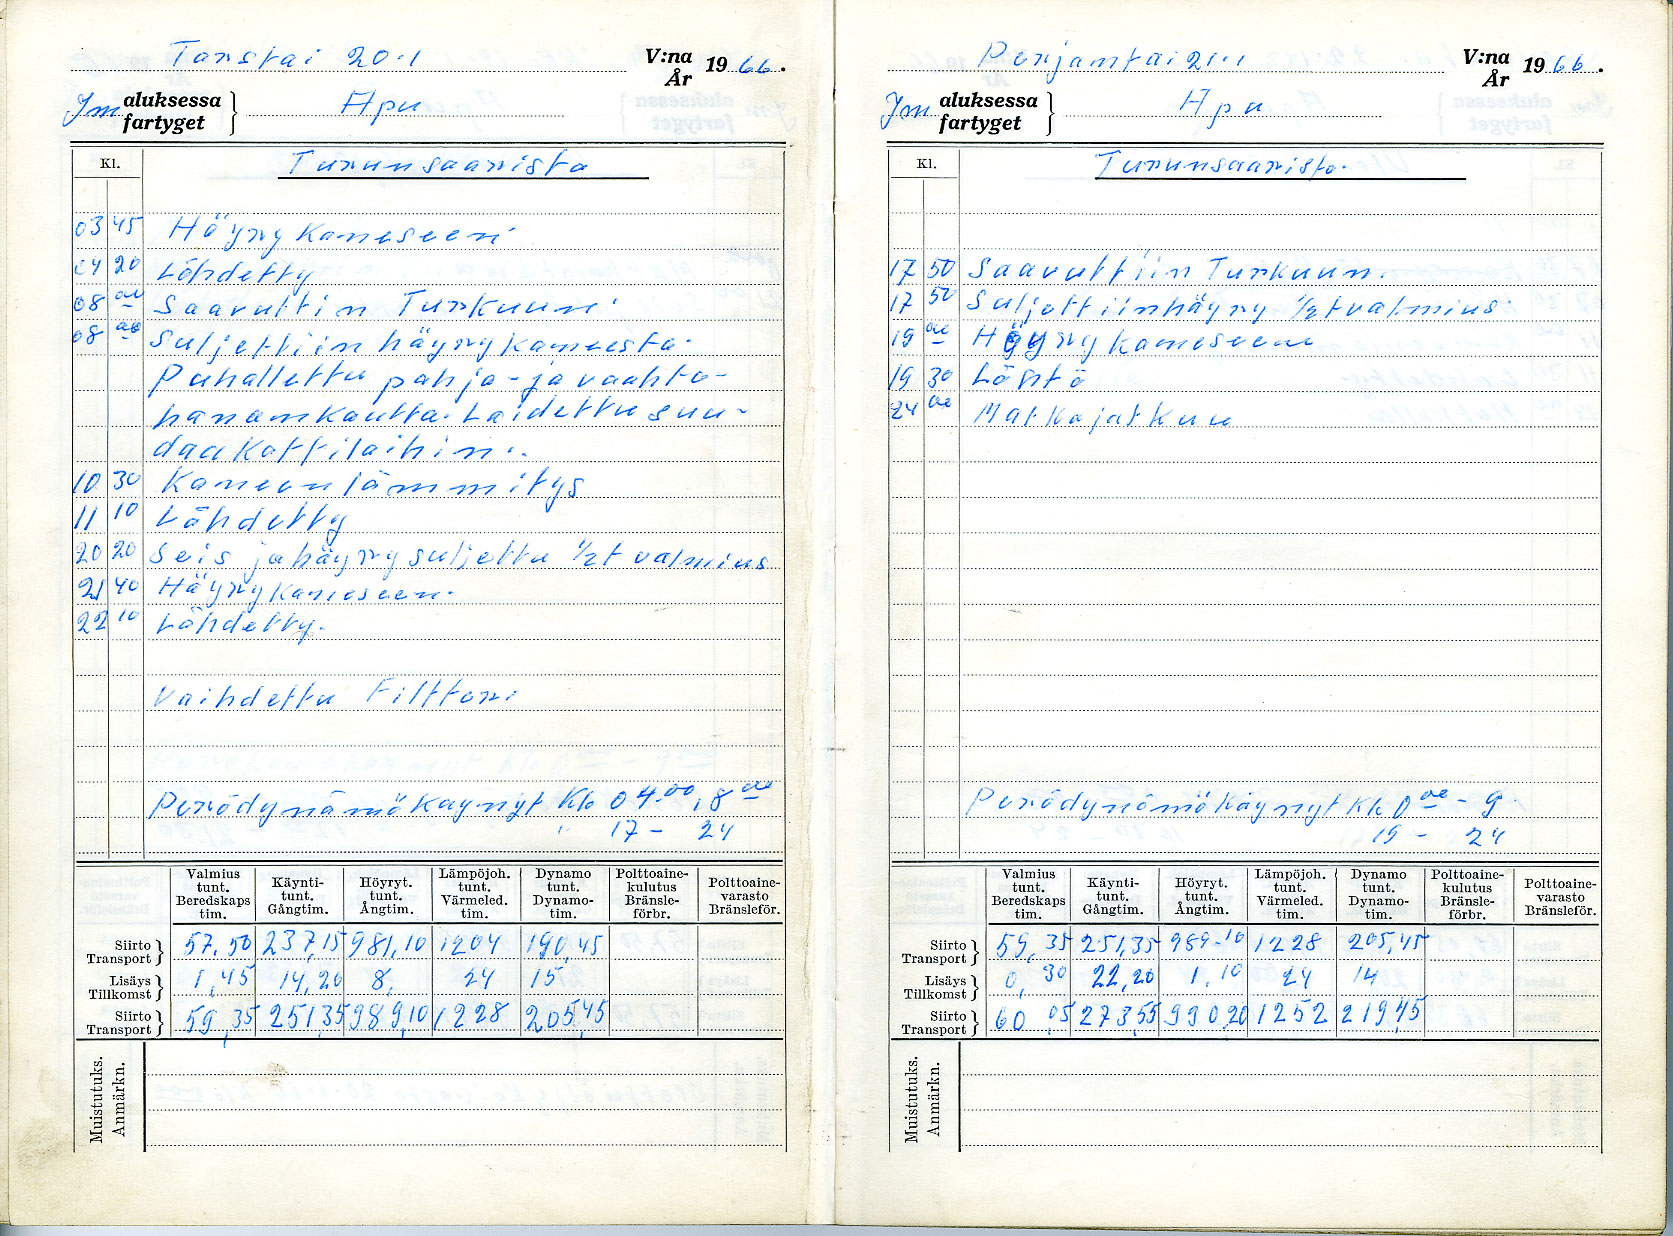 Torstai 20.1 V:na År 1966.
Jm aluksessa fartyget } Apu
Kl. Turunsaaristo
03 45 Höyry koneseen
04 20 Lähdetty
08 00 Saavuttin Turkuun.
08 00 Suljettiin höyry koneesta.
Puhallettu pohja- ja vaahto-
hanankautta. Laidettu suu-
daa kattilaihin..
10 30 Koneen lämmitys
11 10 Lähdetty
20 20 Seis ja höyry suljettu ½ t valmius
21 40 Höyry koneseen.
22 10 Lähdetty.
Vaihdettu Filttori
Perädynämö käynyt klo 04.00, 8 00
" 17 - 24
Valmius tunt. Beredskaps tim. Käynti- tunt. Gångtim. Höyryt. tunt. Ångtim. Lämpöjoh. tunt. Värmeled. tim. Dynamo tunt. Dynamo- tim. Polttoaine- kulutus Bränsle- förbr. Polttoaine- varasto Bränsleför.
Siirto Transport } 57,50 237,15 981,10 1204 190,45
Lisäys Tillkomst } 1,45 14,20 8, 24 15
Siirto Transport } 59,35 251,35 989,10 1228 205,45
Muistutuks. Anmärkn.
Perjantai 21.1 V:na År 1966.
Jm aluksessa fartyget } Apu
Kl. Turunsaaristo.
17 50 Saavuttiin Turkuun.
17 50 Suljettiin höyry ½ t valmius.
19 00 Höyry koneseen
19 30 Lähtö
24 00 Matka jatkuu
Perädynämö käynyt klo 0 00 - 9.
15 - 24
Valmius tunt. Beredskaps tim. Käynti- tunt. Gångtim. Höyryt. tunt. Ångtim. Lämpöjoh. tunt. Värmeled. tim. Dynamo tunt. Dynamo- tim. Polttoaine- kulutus Bränsle- förbr. Polttoaine- varasto Bränsleför.
Siirto Transport } 59,35 251,35 989.10 1228 205,45
Lisäys Tillkomst } 0,30 22,20 1.10 24 14
Siirto Transport } 60,05 273,55 990,20 1252 219,45
Muistutuks. Anmärkn.